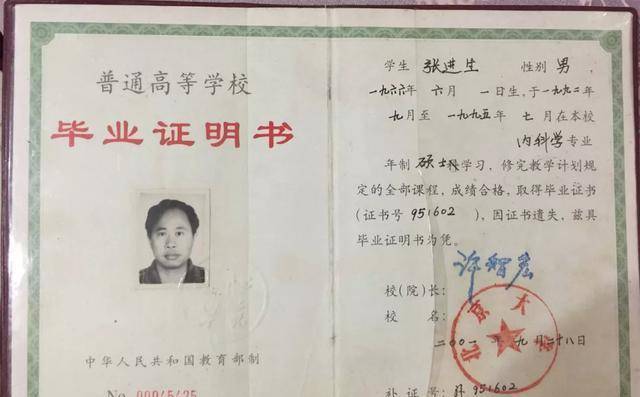 普通高等学校
毕业证明书
中华人民共和国教育部制
No
学生 张进生 性别 男
一九六六年 六月 一日生,于一九九二年
九月至 一九九五年 七月在本校
内科学专业
年制 硕士 学习,修完教学计划规
定的全部课程,成绩合格,取得毕业证书
(证书号 951602),因证书遗失,兹具
毕业证明书为凭。
校(院)长: 许智宏
校 名: 北京大学
二〇〇一年 九月二十八日
补 证 号: 补 951602